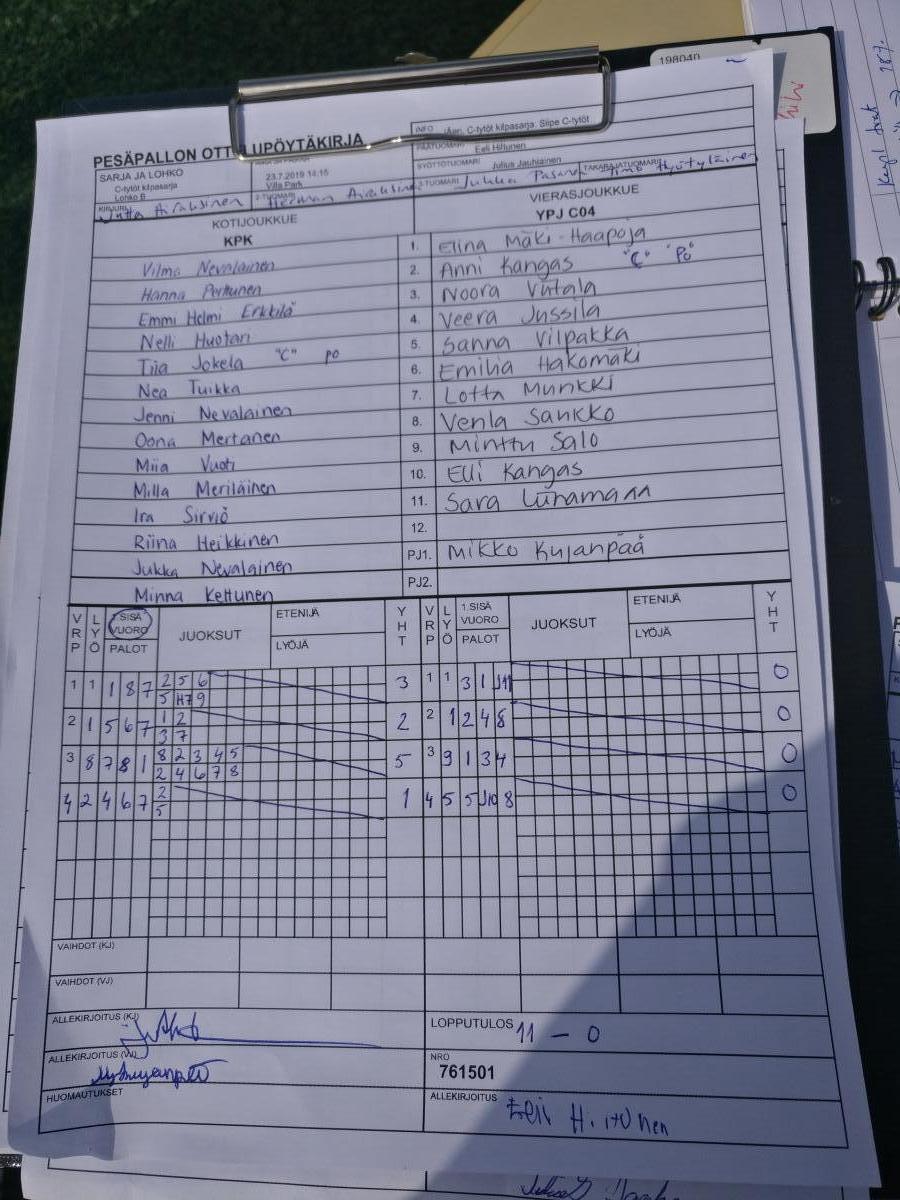 198040
PESÄPALLON OTT UPÖYTÄKIRJA
INFO C-tytöt kilpasarja: Siipe C-tytöt
PÄÄTUOMARI Eeli Hiltunen
SARJA JA LOHKO
C-tytöt kilpasarja
Lohko B
23.7.2019 14:15
Villa Park
SYÖTTÖTUOMARI Julius Jauhiainen TAKARAJATUOMARI
KIRJURI Jutta Airaksinen 2-TUOMARI Herman 3-TUOMARI Jukka
KOTIJOUKKUE VIERASJOUKKUE
KPK YPJ C04
Vilma Nevalainen 1. Elina Mäki-Haapoja
Hanna Perttunen 2. Anni Kangas "C" Pö
Emmi Helmi Erkkilä 3. Noora Viitala
Nelli Huotari 4. Veera Jussila
Tiia Jokela "C" po 5. Sanna Vilpakka
Nea Tuikka 6. Emilia Hakomäki
Jenni Nevalainen 7. Lotta Munkki
Oona Mertanen 8. Venla Sankko
Miia Vuoti 9. Minttu Salo
Milla Meriläinen 10. Elli Kangas
Ira Sirviö 11. Sara Liinamaa
Riina Heikkinen 12.
Jukka Nevalainen PJ1. Mikko Kujanpää
Minna Kettunen PJ2.
VRP LYÖ 1.SISÄ VUORO PALOT JUOKSUT ETENIJÄ LYÖJÄ YHT VRP LYÖ 1.SISÄ VUORO PALOT JUOKSUT ETENIJÄ LYÖJÄ YHT
1 1 1 8 7 2 5 6 3 1 1 3 1 J11 0
5 H7 9
2 1 5 6 7 1 2 2 2 1 2 4 8 0
3 7
3 8 7 8 1 8 2 3 4 5 5 3 9 1 3 4 0
2 4 6 7 8
4 2 4 6 7 2 1 4 5 5 J10 8 0
5
VAIHDOT (KJ)
VAIHDOT (VJ)
ALLEKIRJOITUS (KJ) LOPPUTULOS 11 - 0
ALLEKIRJOITUS (VJ) NRO
761501
HUOMAUTUKSET ALLEKIRJOITUS Eeli Hiltunen